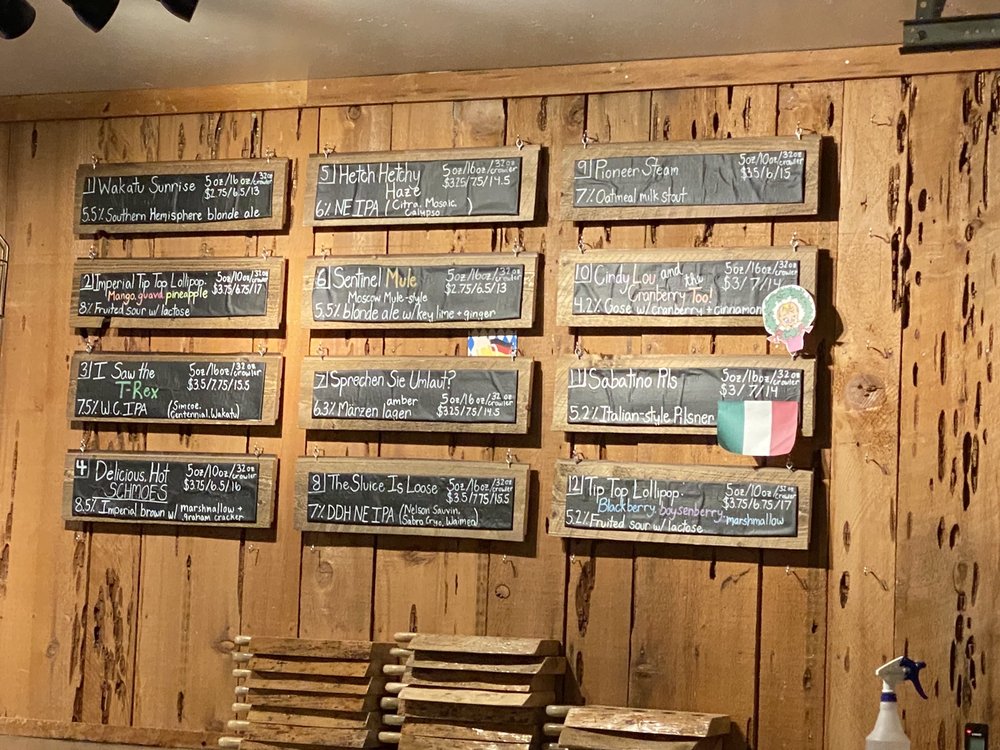 1 Wakatu Sunrise 5oz/16oz/32oz crowler
$2.75/6.5/13
5.5% Southern Hemisphere blonde ale
2 Imperial Tip Top Lollipop: 5oz/10oz/32oz crowler
Mango, guava, pineapple $3.75/6.75/17
8% Fruited sour w/ lactose
3 I Saw the 5oz/16oz/32oz crowler
T-Rex $3.5/7.75/15.5
7.5% W.C. IPA (Simcoe, Centennial, Wakatu)
4 Delicious, Hot 5oz/10oz/32oz crowler
SCHMOES $3.75/6.5/16
8.5% Imperial brown w/ marshmallow + graham cracker
5 Hetch Hetchy 5oz/16oz/32oz crowler
Haze $3.25/7.5/14.5
6% NE IPA (Citra, Mosaic, Calypso)
6 Sentinel Mule 5oz/16oz/32oz crowler
Moscow Mule-style $2.75/6.5/13
5.5% blonde ale w/ key lime + ginger
7 Sprechen Sie Umlaut? 5oz/16oz/32oz crowler
6.3% Märzen amber lager $3.25/7.5/14.5
8 The Sluice Is Loose 5oz/16oz/32oz crowler
$3.5/7.75/15.5
7% DDH NE IPA (Nelson Sauvin, Sabro Cryo, Waimea)
9 Pioneer Steam 5oz/10oz/32oz crowler
$3.5/6/15
7% Oatmeal milk stout
10 Cindy Lou and the 5oz/16oz/32oz crowler
Cranberry Too! $3/7/14
4.2% Gose w/ cranberry + cinnamon
11 Sabatino Pils 5oz/16oz/32oz crowler
$3/7/14
5.2% Italian-style Pilsner
12 Tip Top Lollipop: 5oz/10oz/32oz crowler
Blackberry, boysenberry, marshmallow $3.75/6.75/17
5.2% Fruited sour w/ lactose